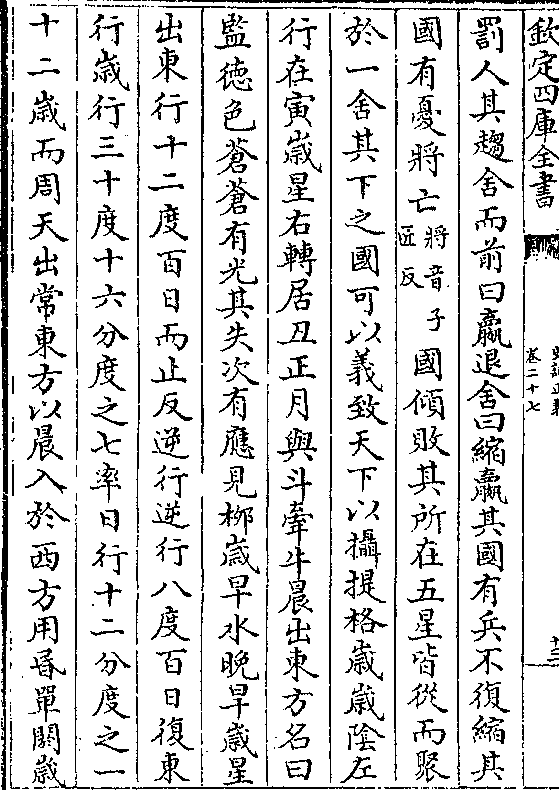 欽定四庫全書
史記正義
卷二十七
十三
罰人其趨舍而前曰贏退舍曰縮贏其國有兵不復縮其
國有憂將亡將音子匠反國傾敗其所在五星皆從而聚
於一舍其下之國可以義致天下以攝提格歲歲陰左
行在寅歲星右轉居丑正月與斗牽牛晨出東方名曰
監徳色蒼蒼有光其失次有應見栁歲早水晚旱歲星
出東行十二度百日而止反逆行逆行八度百日復東
行歲行三十度十六分度之七率日行十二分度之一
十二歲而周天出常東方以晨入於西方用昬單閼歲